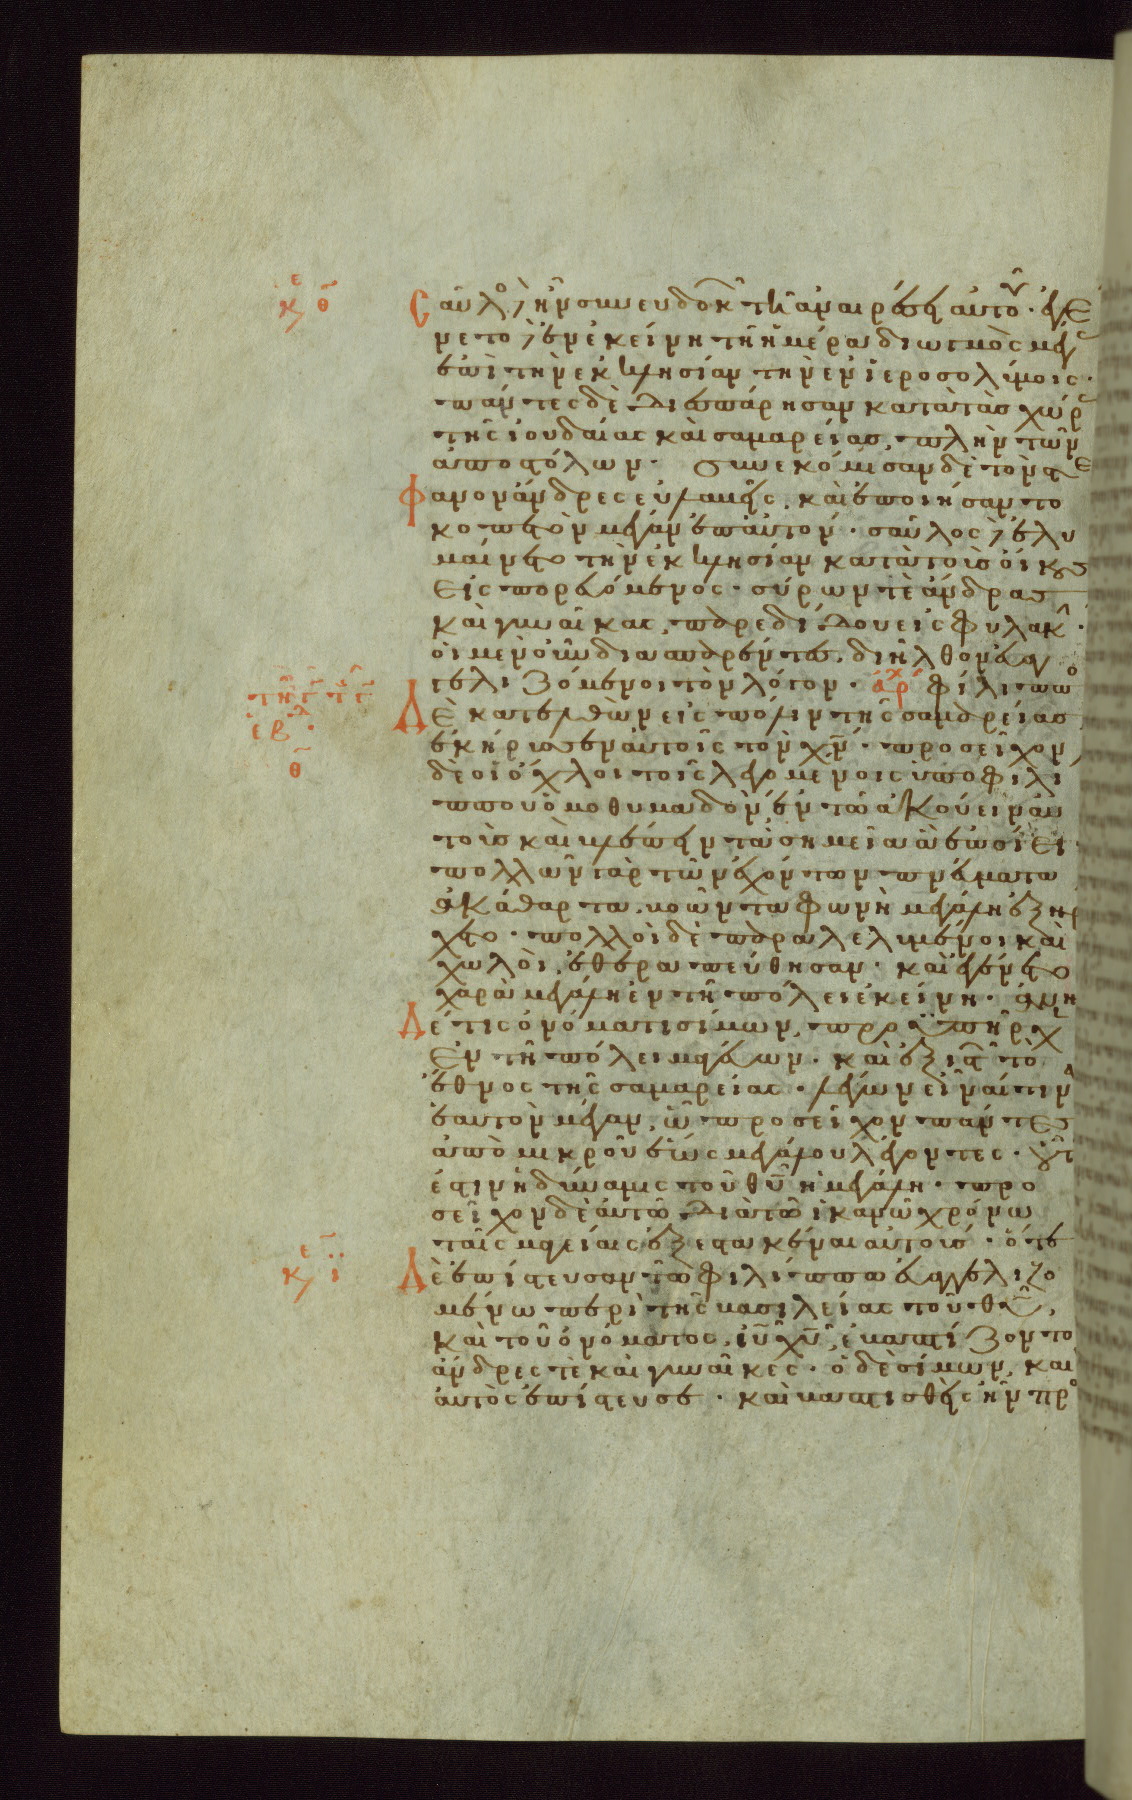 ε
κ/ θ
Σαῦλο δὲ ἦν συνευδοκ τῆ ἀναιρέσει αὐτοῦ · ἐγέ
νετο δὲ ἐν ἐκείνη τῆ ἡμέρα διωγμὸς μέγ
ἐπὶ τὴν ἐκκλησίαν τὴν ἐν ἱεροσολύμοις ·
πάντες δὲ διεσπάρησαν κατὰ τὰσ χώρ
τῆς ἰουδαίας καὶ σαμαρείας, πλὴν τῶν
ἀποστόλων · συνεκόμισαν δὲ τὸν στέ
φανον ἄνδρες εὐλαβεῖς, καὶ ἐποιήσαντο
κοπετὸν μέγαν ἐπ αὐτόν · σαῦλος δὲ ἐλυ
μαίνετο τὴν ἐκκλησίαν κατὰ τοὺσ οἴκουσ
εἰςπορευόμενος · σύρων τὲ ἄνδρασ
καὶ γυναῖκας, παρεδίδου εἰς φυλακ ·
οἱ μὲν οὖν διασπαρέντες, διῆλθον εὐαγ
γελιζόμενοι τὸν λόγον · ἀρχ φίλιππο
δὲ κατελθὼν εἰς πόλιν τῆς σαμαρείασ
ἐκήρυσσεν αὐτοῖς τὸν χν · προσεῖχον
δὲ οἱ ὄχλοι τοῖς λεγομένοις ὑπο φιλί
ππου ὁμοθυμαδὸν ἐν τῶ ἀκούειν αὐ
τοὺσ καὶ βλέπειν τὰ σημεῖα ἃ ἐποίει ·
πολλῶν γὰρ τῶν ἐχόντων πνεύματα
ἀκάθαρτα, βοῶντα φωνῆ μεγάλη ἐξήρ
χετο · πολλοὶ δὲ παραλελυμένοι καὶ
χωλοὶ, ἐθεραπεύθησαν · καὶ ἐγένετο
χαρὰ μεγάλη ἐν τῆ πόλει ἐκείνη · ἀνὴρ
δέ τις ὀνόματι σίμων, προϋπῆρχ
ἐν τῆ πόλει μαγεύων · καὶ ἐξιστ τὸ
ἔθνος τῆς σαμαρείας · λέγων εἶναί τιν
ἑαυτὸν μέγαν, ὧ προσεῖχον πάντεσ
ἀπὸ μικροῦ ἕως μεγάλου λέγοντες · οὗτ
ἐστιν ἡ δύναμις τοῦ θυ ἡ μεγάλη · προ
σεῖχον δὲ αὐτῶ διὰ τὸ ἱκανῶ χρόνω
ταῖς μαγείαις ἐξεστακέναι αὐτούσ · ὅτε
ε
κ/ ϊ
δὲ ἐπίστευσαν τῶ φιλίππω εὐαγγελιζο
μένω περὶ τῆς βασιλείας τοῦ θυ,
καὶ τοῦ ὀνόματος, ιυ χυ, ἐβαπτίζοντο
ἄνδρες τὲ καὶ γυναῖκες · ὁ δὲ σίμων, καὶ
αὐτὸς ἐπίστευσε · καὶ βαπτισθεὶς ἦν πρ